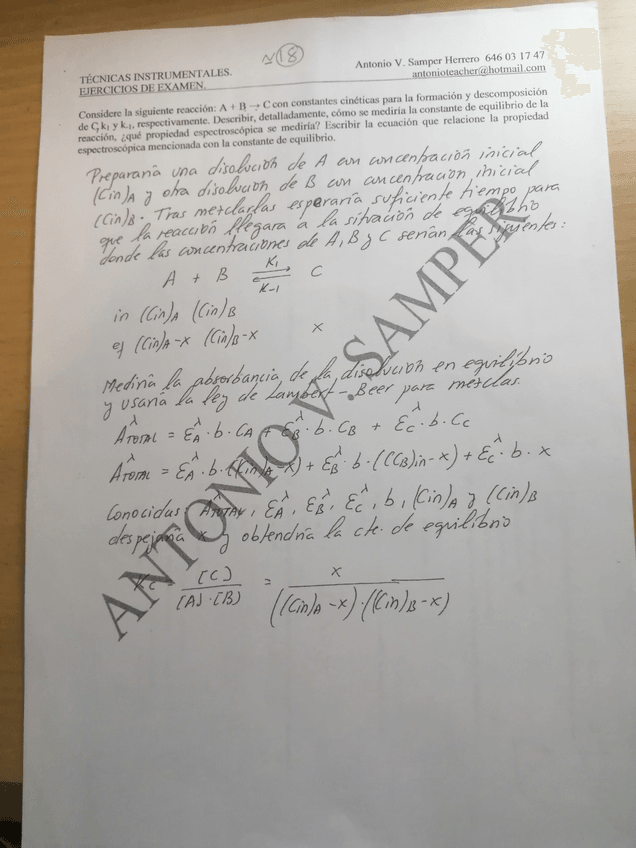 ≈ 18
TÉCNICAS INSTRUMENTALES.
EJERCICIOS DE EXAMEN.
Antonio V. Samper Herrero 646 03 17 47
antonioteacher@hotmail.com
Considere la siguiente reacción: A + B → C con constantes cinéticas para la formación y descomposición
de C, k₁ y k₋₁, respectivamente. Describir, detalladamente, cómo se mediría la constante de equilibrio de la
reacción, ¿qué propiedad espectroscópica se mediría? Escribir la ecuación que relacione la propiedad
espectroscópica mencionada con la constante de equilibrio.
Prepararía una disolución de A con concentración inicial
(Cin)A y otra disolución de B con concentración inicial
(Cin)B. Tras mezclarlas esperaría suficiente tiempo para
que la reacción llegara a la situación de equilibrio
donde las concentraciones de A, B y C serían las siguientes:
A + B ⇌ C K1 K-1
in (Cin)A (Cin)B
eq (Cin)A-x (Cin)B-x x
Mediría la absorbancia de la disolución en equilibrio
y usaría la ley de Lambert-Beer para mezclas.
A^λ TOTAL = ε_A^λ · b · C_A + ε_B^λ · b · C_B + ε_C^λ · b · C_C
A^λ TOTAL = ε_A^λ · b · ((Cin)A-x) + ε_B^λ · b · ((CB)in-x) + ε_C^λ · b · x
Conocidas: A^λ TOTAL, ε_A^λ, ε_B^λ, ε_C^λ, b, (Cin)A y (Cin)B
despejaría x y obtendría la cte. de equilibrio
Kc = [C] / [A]·[B] = x / ((Cin)A-x)·((Cin)B-x)
ANTONIO V. SAMPER